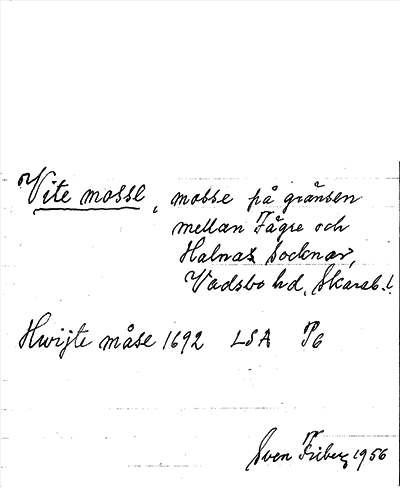 Vite mosse, mosse på gränsen
mellan Fägre och
Halna socknar,
Vadsbo hd. Skarab. l.
Hwijte måse 1692 LSA P6
Sven Friberg 1956